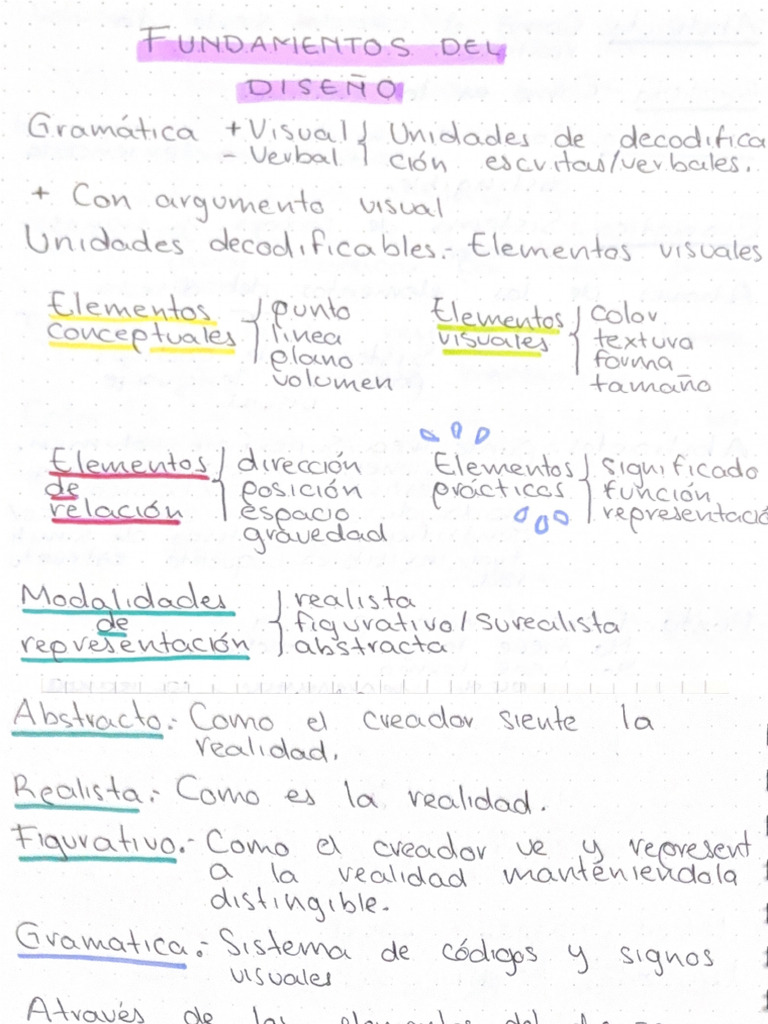 FUNDAMENTOS DEL
DISEÑO
Gramática + Visual { Unidades de decodifica
- Verbal { ción escritas/verbales.
+ Con argumento visual
Unidades decodificables.- Elementos visuales
Elementos { punto
conceptuales línea
plano
volumen
Elementos { Color
visuales textura
forma
tamaño
Elementos { dirección
de posición
relación espacio
gravedad
Elementos { significado
prácticos función
representació
Modalidades { realista
de figurativo/Surealista
representación abstracta
Abstracto.- Como el creador siente la
realidad.
Realista.- Como es la realidad.
Figurativo.- Como el creador ve y represent
a la realidad manteniendola
distingible.
Gramatica.- Sistema de códigos y signos
visuales
Através de los elementos del